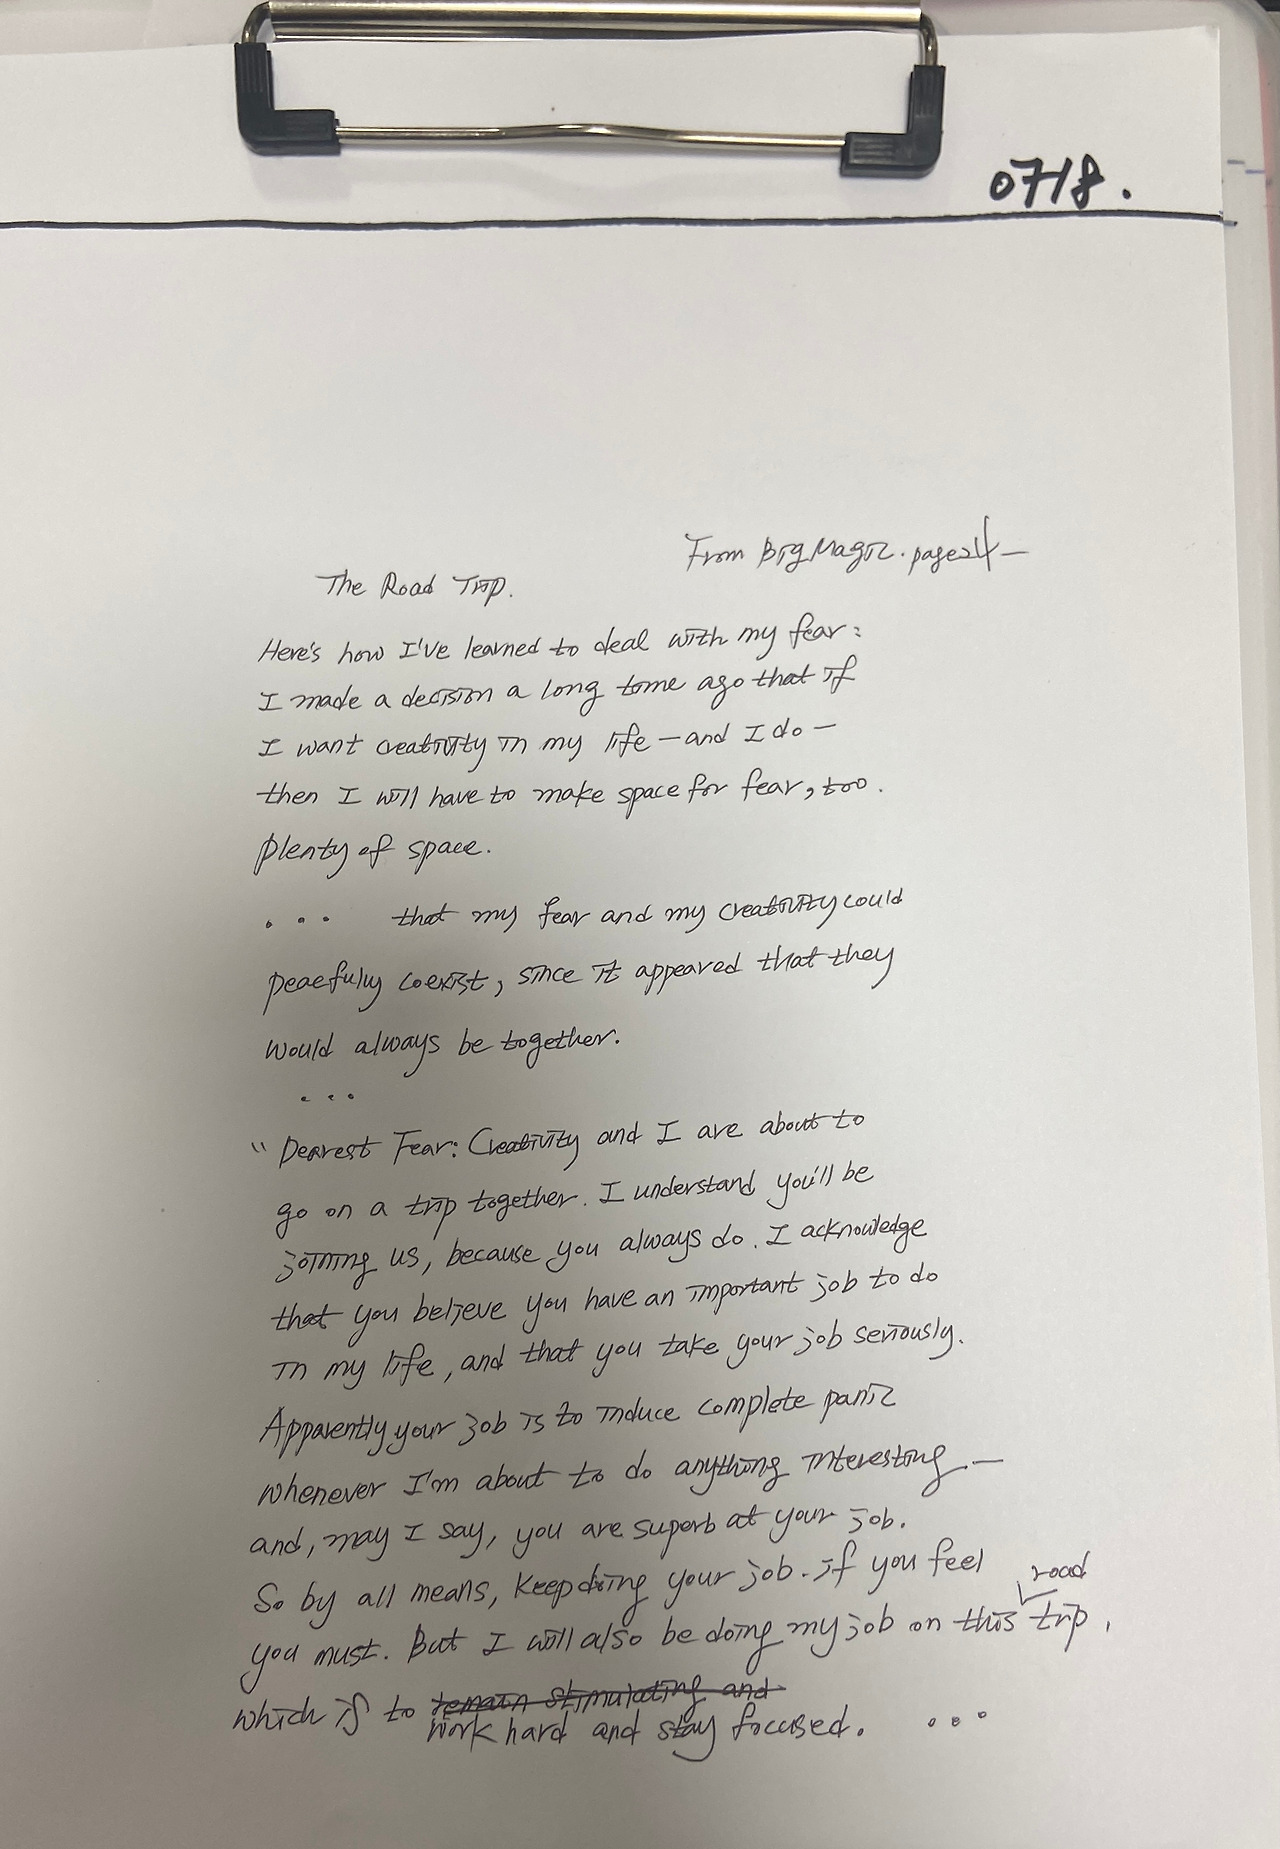 0718.
From Big Magic. page24—
The Road Trip.
Here's how I've learned to deal with my fear:
I made a decision a long tome ago that if
I want creativity in my life — and I do —
then I will have to make space for fear, too.
plenty of space.
... that my fear and my creativity could
peacefully coexist, since it appeared that they
would always be together.
...
"Dearest Fear: Creativity and I are about to
go on a trip together. I understand you'll be
joining us, because you always do. I acknowledge
that you believe you have an important job to do
in my life, and that you take your job seriously.
Apparently your job is to induce complete panic
whenever I'm about to do anything interesting —
and, may I say, you are superb at your job.
So by all means, keep doing your job. if you feel
road
you must. But I will also be doing my job on this trip,
which is to remain stimulating and
work hard and stay focused. ...